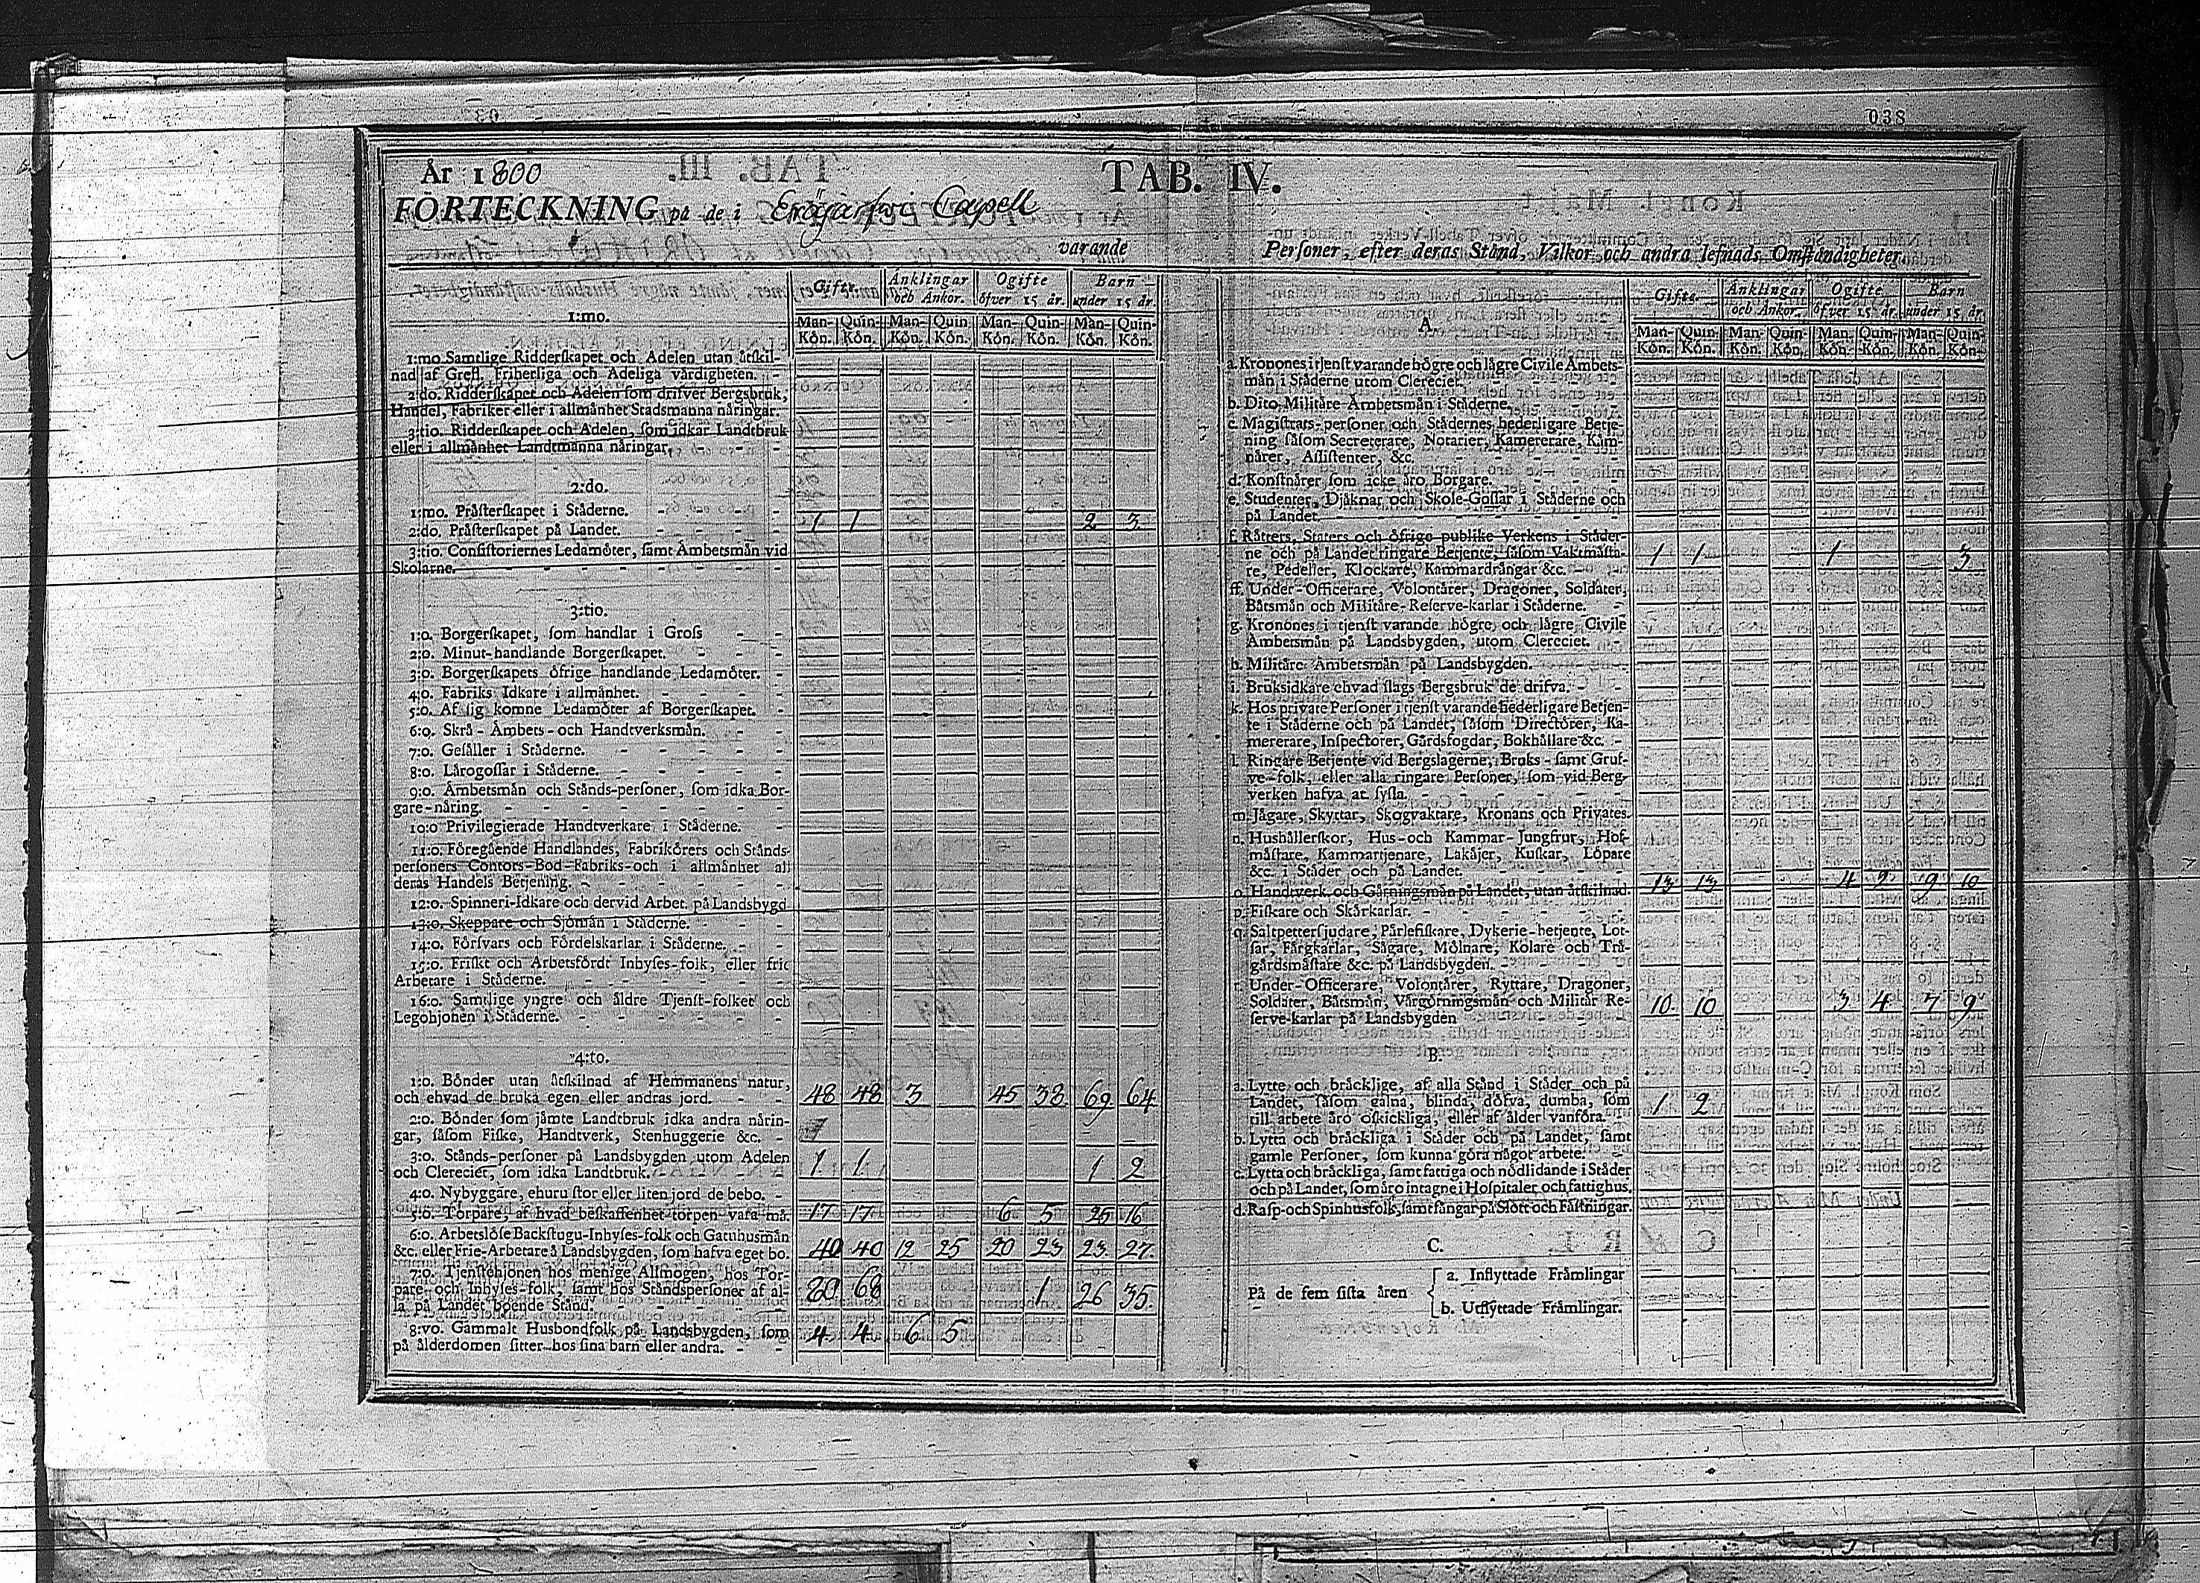 038
År 1800 TAB. IV.
FÖRTECKNING på de i Eräjärfvi Capell
varande Personer, efter deras Stånd, Vilkor och andra lefnads Omständigheter.
Gifte. Änklingar och Änkor. Ogifte öfver 15 år. Barn under 15 år.
Man-Kön. Quin-Kön. Man-Kön. Quin-Kön. Man-Kön. Quin-Kön. Man-Kön. Quin-Kön.
1:mo.
1:mo Samtlige Ridderskapet och Adelen utan åtskil-
nad af Grefl. Friherliga och Adeliga värdigheten.
2:do. Ridderskapet och Adelen som drifver Bergsbruk,
Handel, Fabriker eller i allmänhet Stadsmanna näringar.
3:tio. Ridderskapet och Adelen, som idkar Landtbruk
eller i allmänhet Landtmanna näringar.
2:do.
1:mo. Prästerskapet i Städerne.
2:do. Prästerskapet på Landet. 1 1 2 3
3:tio. Consistoriernes Ledamöter, samt Ämbetsmän vid
Skolarne.
3:tio.
1:o. Borgerskapet, som handlar i Gross
2:o. Minut-handlande Borgerskapet.
3:o. Borgerskapets öfrige handlande Ledamöter.
4:o. Fabriks Idkare i allmänhet.
5:o. Af sig komne Ledamöter af Borgerskapet.
6:o. Skrå-Ämbets-och Handtverksmän.
7:o. Gesäller i Städerne.
8:o. Lärogossar i Städerne.
9:o. Ämbetsmän och Stånds-personer, som idka Bor-
gare-näring.
10:o Privilegierade Handtverkare i Städerne.
11:o. Föregående Handlandes, Fabrikörers och Stånds-
personers Contors-Bod-Fabriks-och i allmänhet all
deras Handels Betjening.
12:o. Spinneri-Idkare och dervid Arbet. på Landsbygd
13:o. Skeppare och Sjömän i Städerne.
14:o. Försvars och Fördelskarlar i Städerne.
15:o. Friskt och Arbetsfördt Inhyses-folk, eller frie
Arbetare i Städerne.
16:o. Samtlige yngre och äldre Tjenst-folket och
Legohjonen i Städerne.
4:to.
1:o. Bönder utan åtskilnad af Hemmanens natur,
och ehvad de bruka egen eller andras jord. 48 48 3 45 38 69 64
2:o. Bönder som jämte Landtbruk idka andra närin-
gar, såsom Fiske, Handtverk, Stenhuggerie &c.
3:o. Stånds-personer på Landsbygden utom Adelen
och Clereciet, som idka Landtbruk. 1 1 1 2
4:o. Nybyggare, ehuru stor eller liten jord de bebo.
5:o. Torpare, af hvad beskaffenhet torpen vara må. 17 17 6 5 25 16
6:o. Arbetslöse Backstugu-Inhyses-folk och Gatuhusmän
&c. eller Frie-Arbetare å Landsbygden, som hafva eget bo. 40 40 12 25 20 23 23 27.
7:o. Tjenstehjonen hos menige Allmogen, hos Tor-
pare-och Inhyses-folk, samt hos Ståndspersoner af al-
la på Landet boende Stånd. 80 68 1 26 35.
8:vo. Gammalt Husbondfolk på Landsbygden, som
på ålderdomen sitter hos sina barn eller andra. 4 4 6 5
Gifte. Änklingar och Änkor. Ogifte öfver 15 år. Barn under 15 år.
Man-Kön. Quin-Kön. Man-Kön. Quin-Kön. Man-Kön. Quin-Kön. Man-Kön. Quin-Kön.
A.
a. Kronones i tjenst varande högre och lägre Civile Ämbets-
män i Städerne utom Clereciet.
b. Dito Militäre Ämbetsmän i Städerne.
c. Magistrats-personer och Städernes hederligare Betje-
ning såsom Secreterare, Notarier, Kamererare, Käm-
närer, Assistenter, &c.
d. Konstnärer som icke äro Borgare.
e. Studenter, Djäknar och Skole-Gossar i Städerne och
på Landet.
f. Rätters, Staters och öfrige publike Verkens i Städer-
ne och på Landet ringare Betjente, såsom Vaktmästa-
re, Pedeller, Klockare, Kammardrängar &c. 1 1 1 3
ff. Under-Officerare, Volontärer, Dragoner, Soldater,
Båtsmän och Militäre-Reserve-karlar i Städerne.
g. Kronones i tjenst varande högre och lägre Civile
Ämbetsmän på Landsbygden, utom Clereciet.
h. Militäre Ämbetsmän på Landsbygden.
i. Bruksidkare ehvad slags Bergsbruk de drifva.
k. Hos private Personer i tjenst varande hederligare Betjen-
te i Städerne och på Landet, såsom Directörer, Ka-
mererare, Inspectorer, Gårdsfogdar, Bokhållare &c.
l. Ringare Betjente vid Bergslagerne, Bruks-samt Gruf-
ve-folk, eller alla ringare Personer, som vid Berg-
verken hafva at sysla.
m. Jägare, Skyttar, Skogvaktare, Kronans och Privates.
n. Hushållerskor, Hus-och Kammar-Jungfrur, Hof-
mästare, Kammartjenare, Lakäjer, Kuskar, Löpare
&c. i Städer och på Landet.
o. Handtverk och Gärningsmän på Landet, utan åtskilnad. 13 13 4 2 9 10
p. Fiskare och Skärkarlar.
q. Saltpettersjudare, Pärlefiskare, Dykerie-betjente, Lot-
sar, Färgkarlar, Sågare, Mölnare, Kolare och Trä-
gårdsmästare &c. på Landsbygden.
r. Under-Officerare, Volontärer, Ryttare, Dragoner,
Soldater, Båtsmän, Värgöringsmän och Militär Re-
serve-karlar på Landsbygden 10. 10 3 4 7 9
B.
a. Lytte och bräcklige, af alla Stånd i Städer och på
Landet, såsom galna, blinda, döfva, dumba, som
till arbete äro oskickliga, eller af ålder vanföra. 1 2
b. Lytta och bräckliga i Städer och på Landet, samt
gamle Personer, som kunna göra något arbete.
c. Lytta och bräckliga, samt fattiga och nödlidande i Städer
och på Landet, som äro intagne i Hospitaler och fattighus.
d. Rasp-och Spinhusfolk, samt fångar på Slott och Fästningar.
C.
På de fem sista åren
a. Inflyttade Främlingar
b. Utflyttade Främlingar.